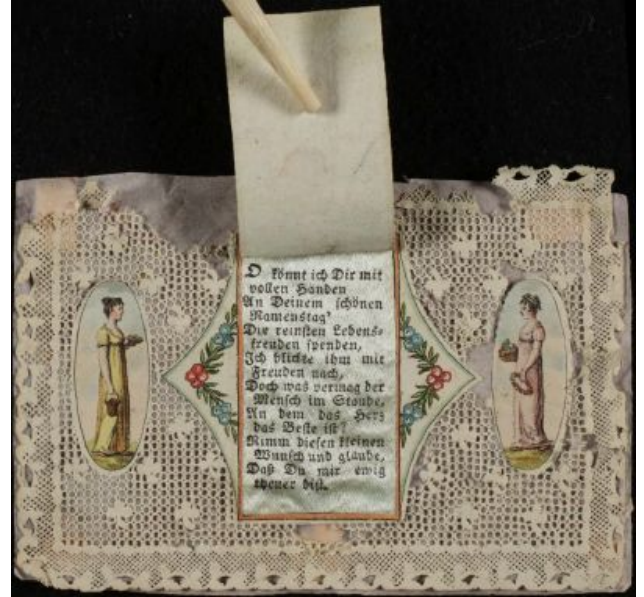 O könnt ich Dir mit
vollen Handen
An Deinem schönen
Namenstag'
Die reinsten Lebens-
freuden spenden,
Ich blickte ihm mit
Freuden nach,
Doch was vermag der
Mensch im Staube,
An dem das Herz
das Beste ist?
Nimm diesen kleinen
Wunsch und glaube,
Daß Du mir ewig
theuer bist.